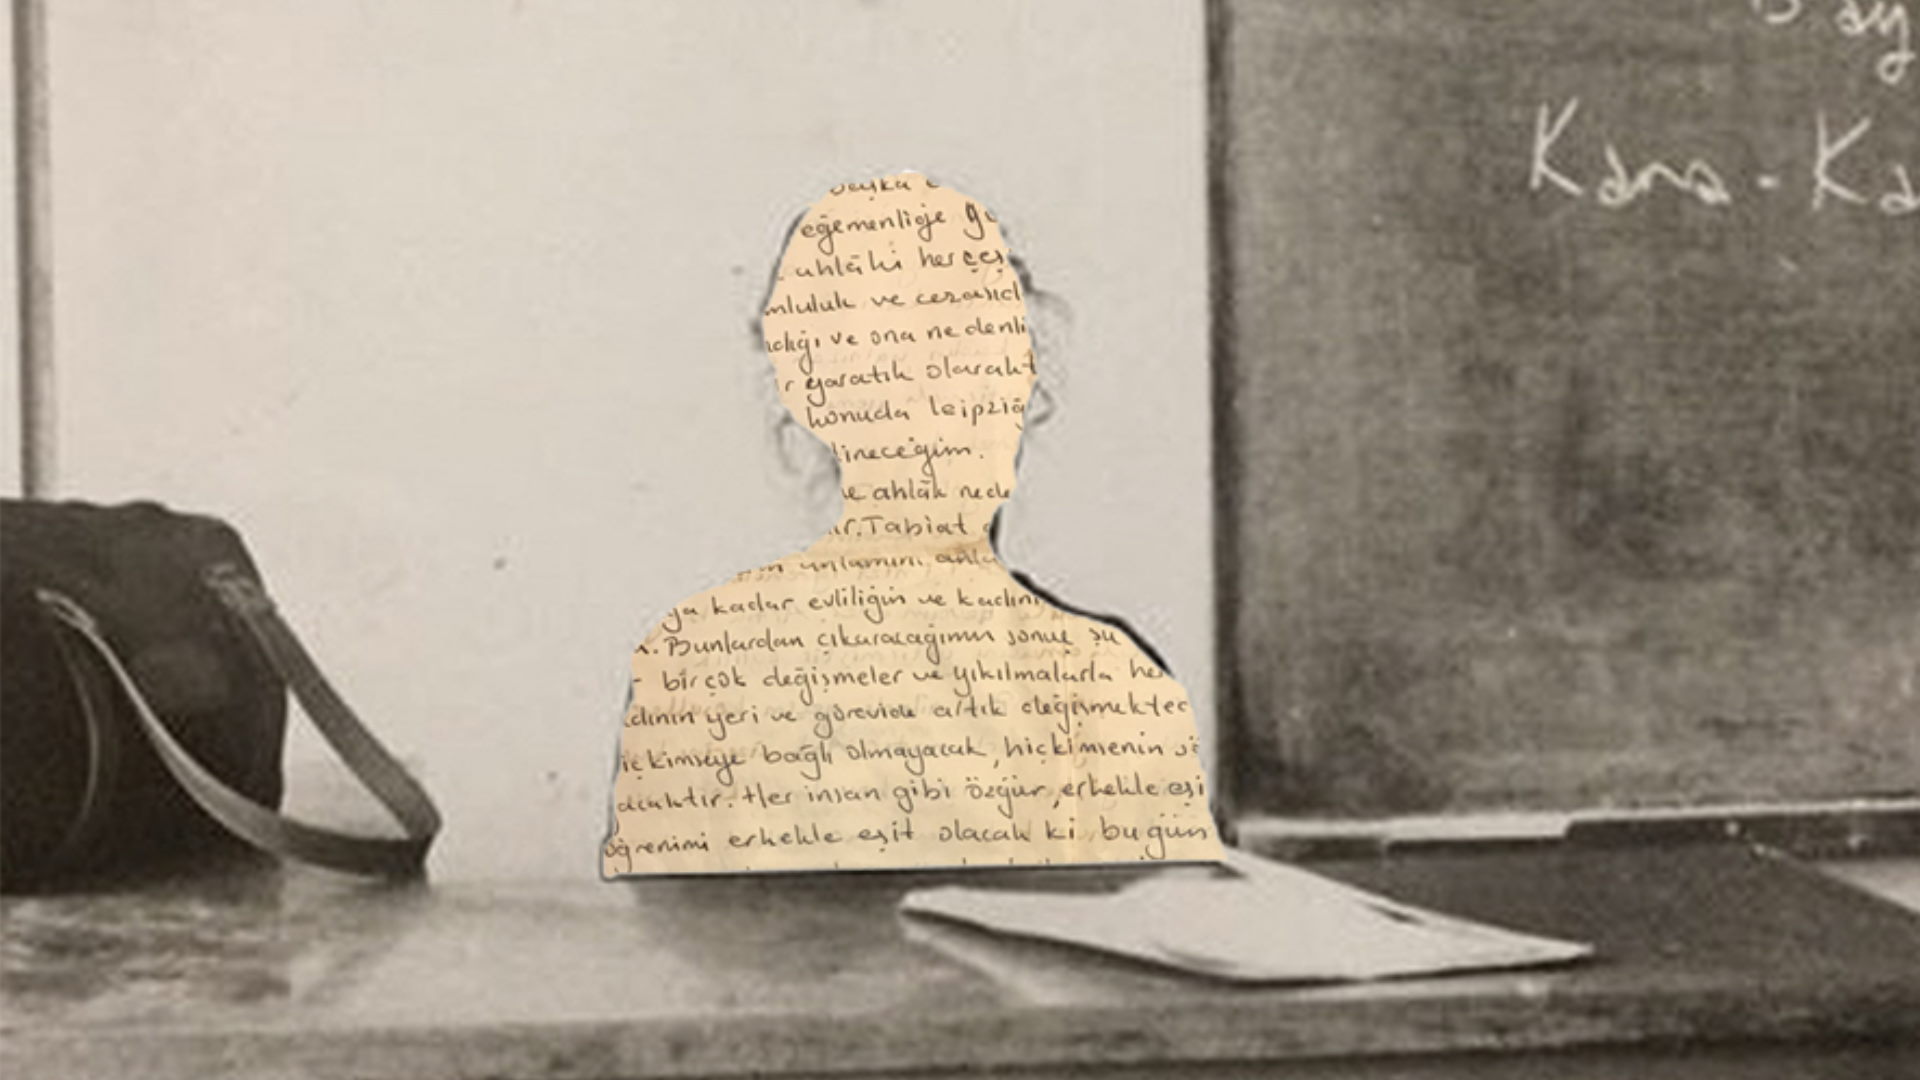 Bay
Kara - Ka
başka
eğemenliğe
ahlâki herçeş
mluluk ve cezasıd
ıdığı ve ona ne denli
r yaratık olarak
konuda leipziğ
ineceğim.
ve ahlâk nede
ır. Tabiat
ın anlamını anla
ya kadar evliliğin ve kadını
Bunlardan çıkaracağımın sonuç şu
- birçok değişmeler ve yıkılmalarla he
dının yeri ve görevide artık değişmektec
iç kimseye bağlı olmayacak, hiçkimsenin
acaktır. Her insan gibi özgür, erkekle eşi
öğrenimi erkekle eşit olacak ki, bugün